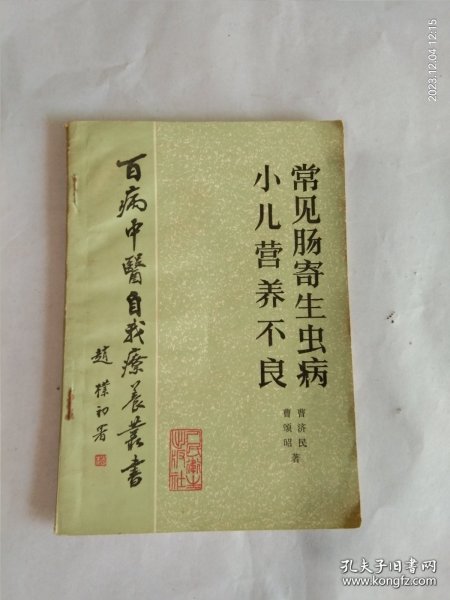 常见肠寄生虫病
小儿营养不良
曹济民
曹颂昭
著
百病中醫自我療養叢書
趙樸初署
人民衛生出版社
2023.12.04 12:15
孔夫子旧书网
www.kongfz.com